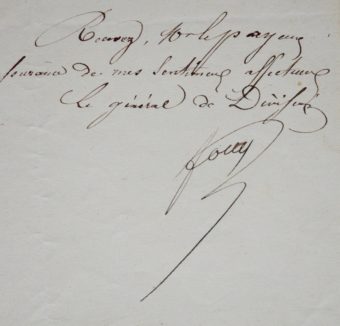 Recevez, Mr le payeur
l'assurance de mes sentimens affectueux
Le général de Division